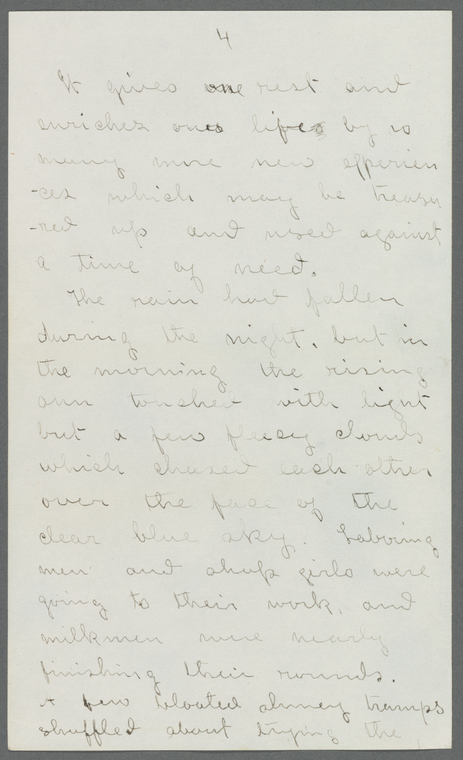 4
It gives one rest and
enriches ones life by so
many more new experien
-ces which may be treasu
-red up and used against
a time of need.
The rain had fallen
during the night, but in
the morning the rising
sun touched with light
but a few fleecy clouds
which chased each other
over the face of the
clear blue sky. Laboring
men and shop girls were
going to their work, and
milkmen were nearly
finishing their rounds.
A few bloated tramps
shuffled about trying the